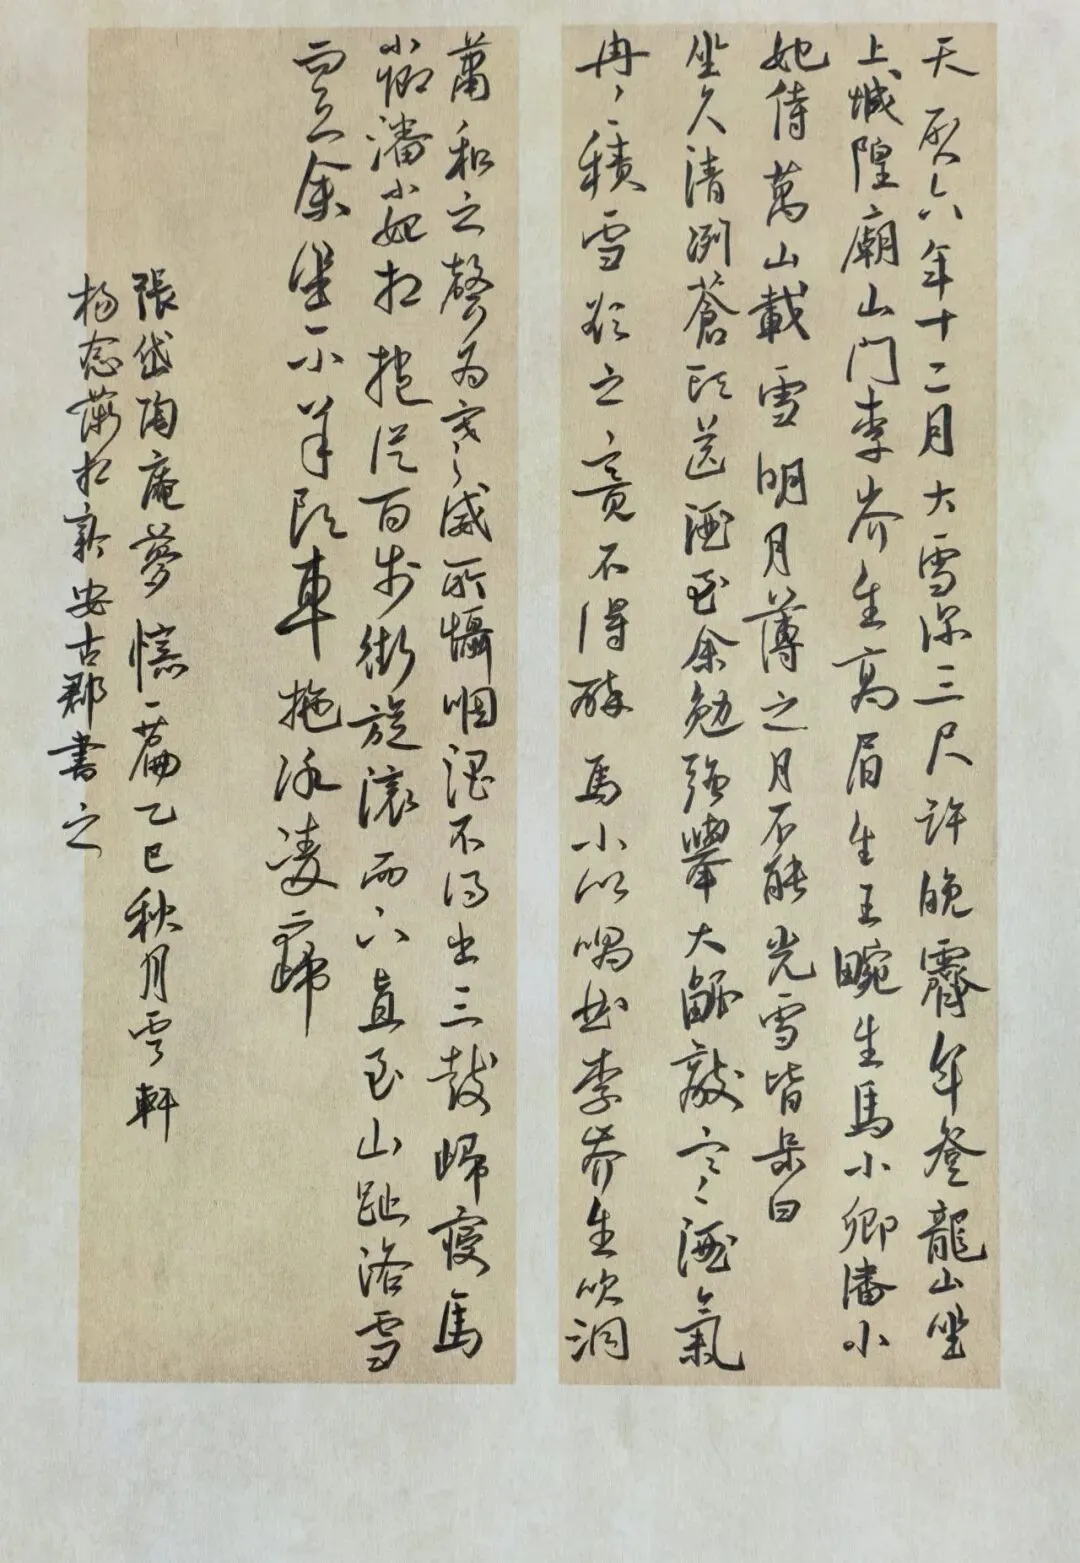 天啟六年十二月大雪深三尺許晚霽年登龍山坐
上城隍廟山門李岕生高眉生王畹生馬小卿潘小
妃侍萬山載雪明月薄之月不能光雪皆呆白
坐久清冽蒼頭送酒至余勉強舉大觥敵寒酒氣
冉冉積雪欲之竟不得醉馬小卿唱曲李岕生吹洞
蕭和之聲為寒威所懾咽澀不得出三鼓歸寢馬
小卿潘小妃相抱從百步街旋滾而下直至山趾浴雪
而立余坐一小羊頭車拖冰凌而歸
張岱陶庵夢憶一篇乙巳秋月雲軒
楊念 於新安古郡書之